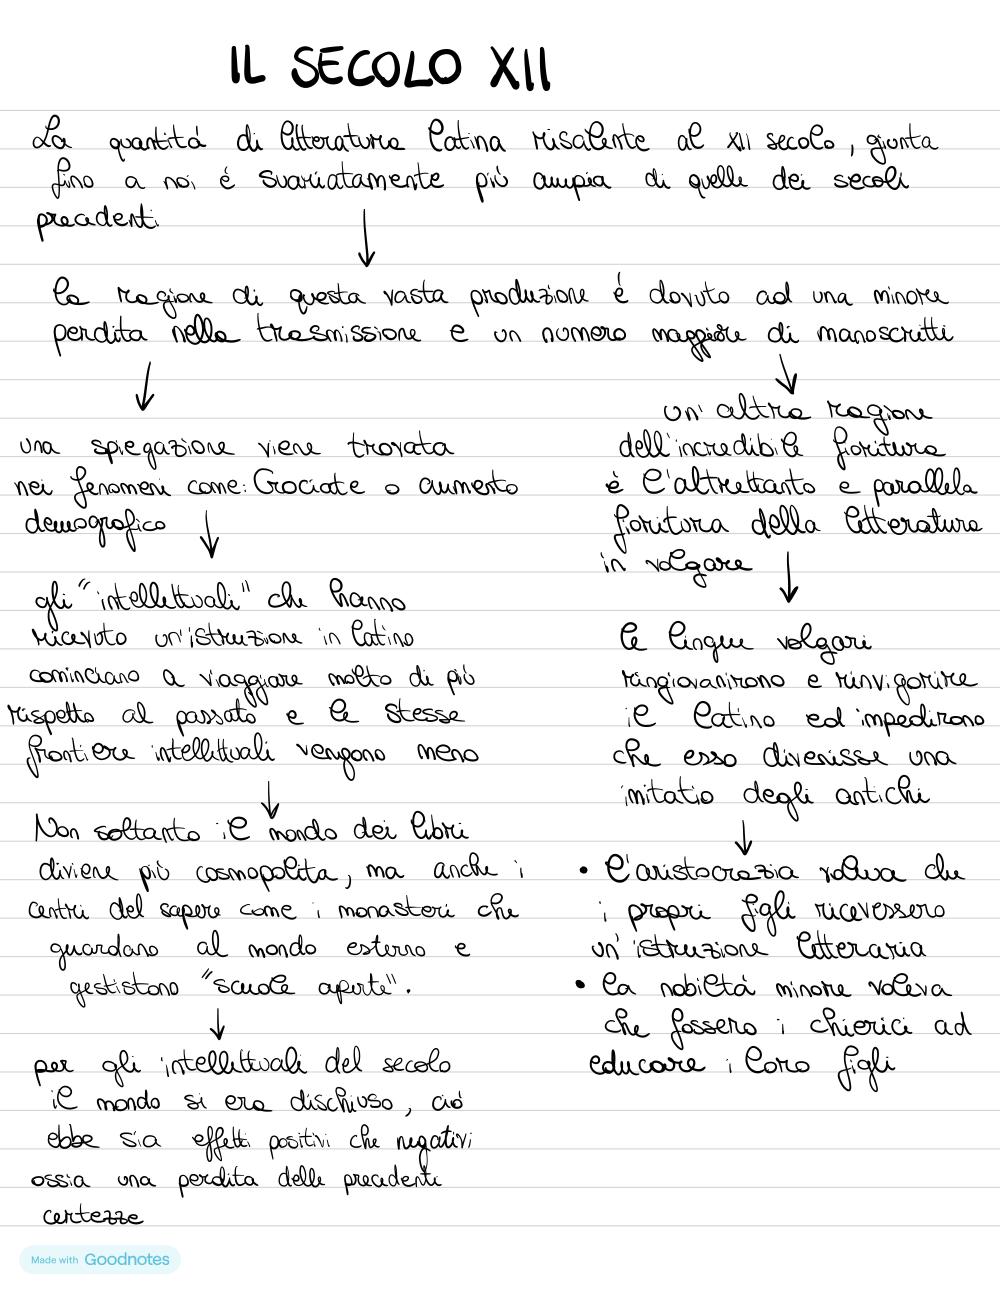 IL SECOLO XII
La quantità di letteratura latina risalente al XII secolo, giunta
fino a noi é svariatamente più ampia di quelle dei secoli
precedenti
la ragione di questa vasta produzione é dovuto ad una minore
perdita nella trasmissione e un numero maggiore di manoscritti
una spiegazione viene trovata
nei fenomeni come: Crociate o aumento
demografico
gli "intellettuali" che hanno
ricevuto un'istruzione in latino
cominciano a viaggiare molto di più
rispetto al passato e le stesse
frontiere intellettuali vengono meno
Non soltanto il mondo dei libri
diviene più cosmopolita, ma anche i
centri del sapere come i monasteri che
guardano al mondo esterno e
gestistono "scuole aperte".
per gli intellettuali del secolo
il mondo si era dischiuso, ciò
ebbe sia effetti positivi che negativi
ossia una perdita delle precedenti
certezze
un'altra ragione
dell'incredibile fioritura
è l'altrettanto e parallela
fioritura della letteratura
in volgare
le lingue volgari
ringiovanirono e rinvigorire
il latino ed impedirono
che esso divenisse una
imitatio degli antichi
• l'aristocrazia voleva che
i propri figli ricevessero
un'istruzione letteraria
• la nobiltà minore voleva
che fossero i chierici ad
educare i loro figli
Made with Goodnotes